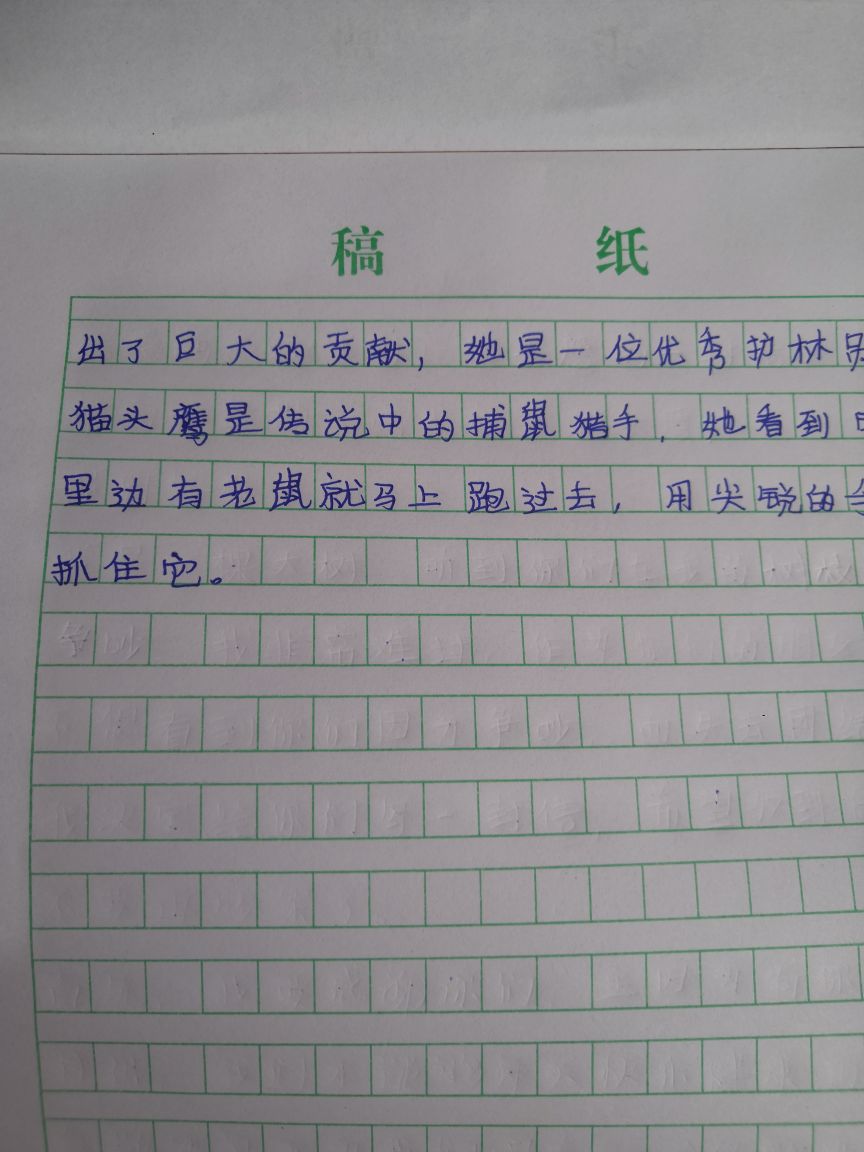 稿 纸
出了巨大的贡献，她是一位优秀护林员
猫头鹰是传说中的捕鼠猎手，她看到
里边有老鼠就马上跑过去，用尖锐的
抓住它。